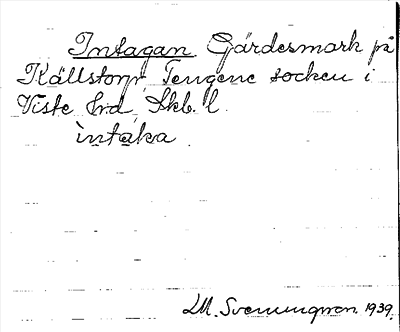 Intagan Gärdesmark på
Källstorp Tengene socken i
Viste hrd, Skb. l.
intaka
LM. Svenungsson. 1939.